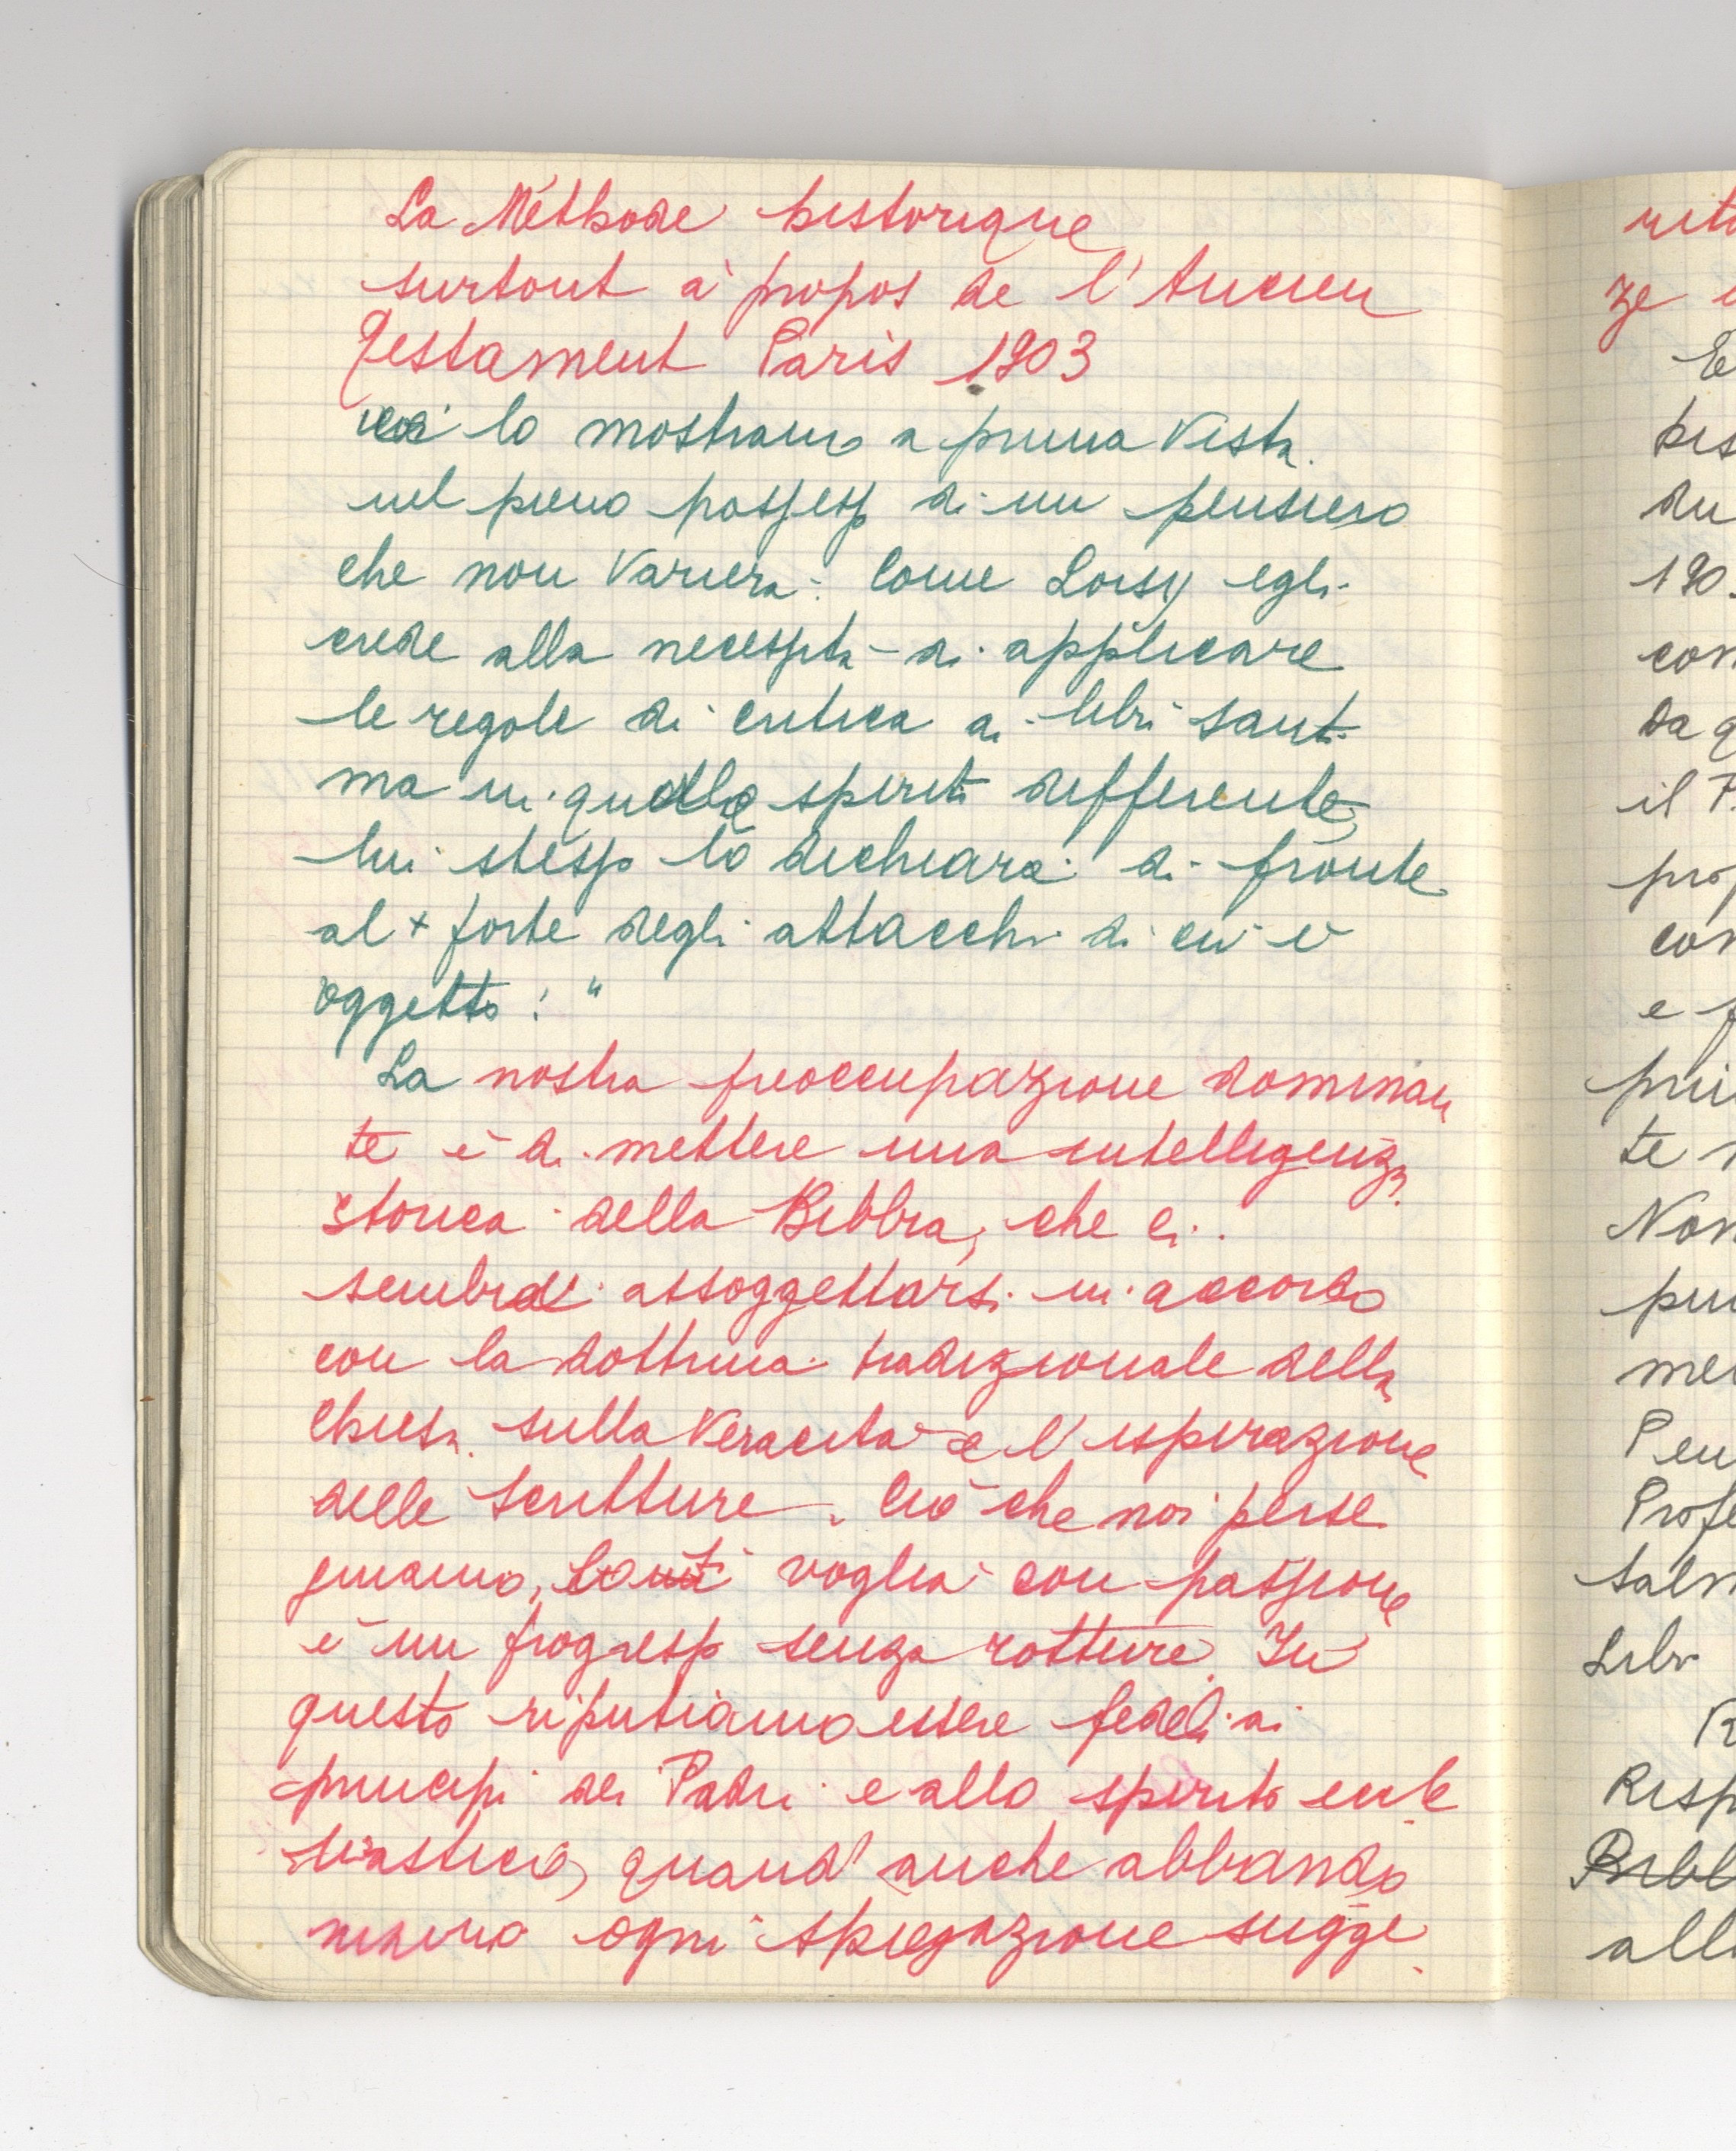 La Méthode historique
surtout à propos de l'Ancien
Testament Paris 1903
lo mostrano a prima vista
nel pieno possesso di un pensiero
che non varierà. Come Loisy egli
crede alla necessità di applicare
le regole di critica ai libri santi
ma in quale spirito differente,
lui stesso lo dichiara di fronte
al + forte degli attacchi di cui è
oggetto: "
La nostra preoccupazione dominan
te è di mettere una intelligenza
storica della Bibbia, che ci
sembra assoggettarsi in accordo
con la dottrina tradizionale della
Chiesa sulla veracità e l'ispirazione
delle Scritture. Ciò che noi perse
guiamo, voglia con passione
è un progresso senza rotture. In
questo riputiamo essere fedeli ai
principi dei Padri e allo spirito eccle
siastico, quand'anche abbando
niamo ogni spiegazione sugge
rit
ze
his
du
190
con
da q
il P
prop
con
e f
pri
te
Non
pu
me
Pen
Profe
salm
Libr
R
Risp
Bibl
all